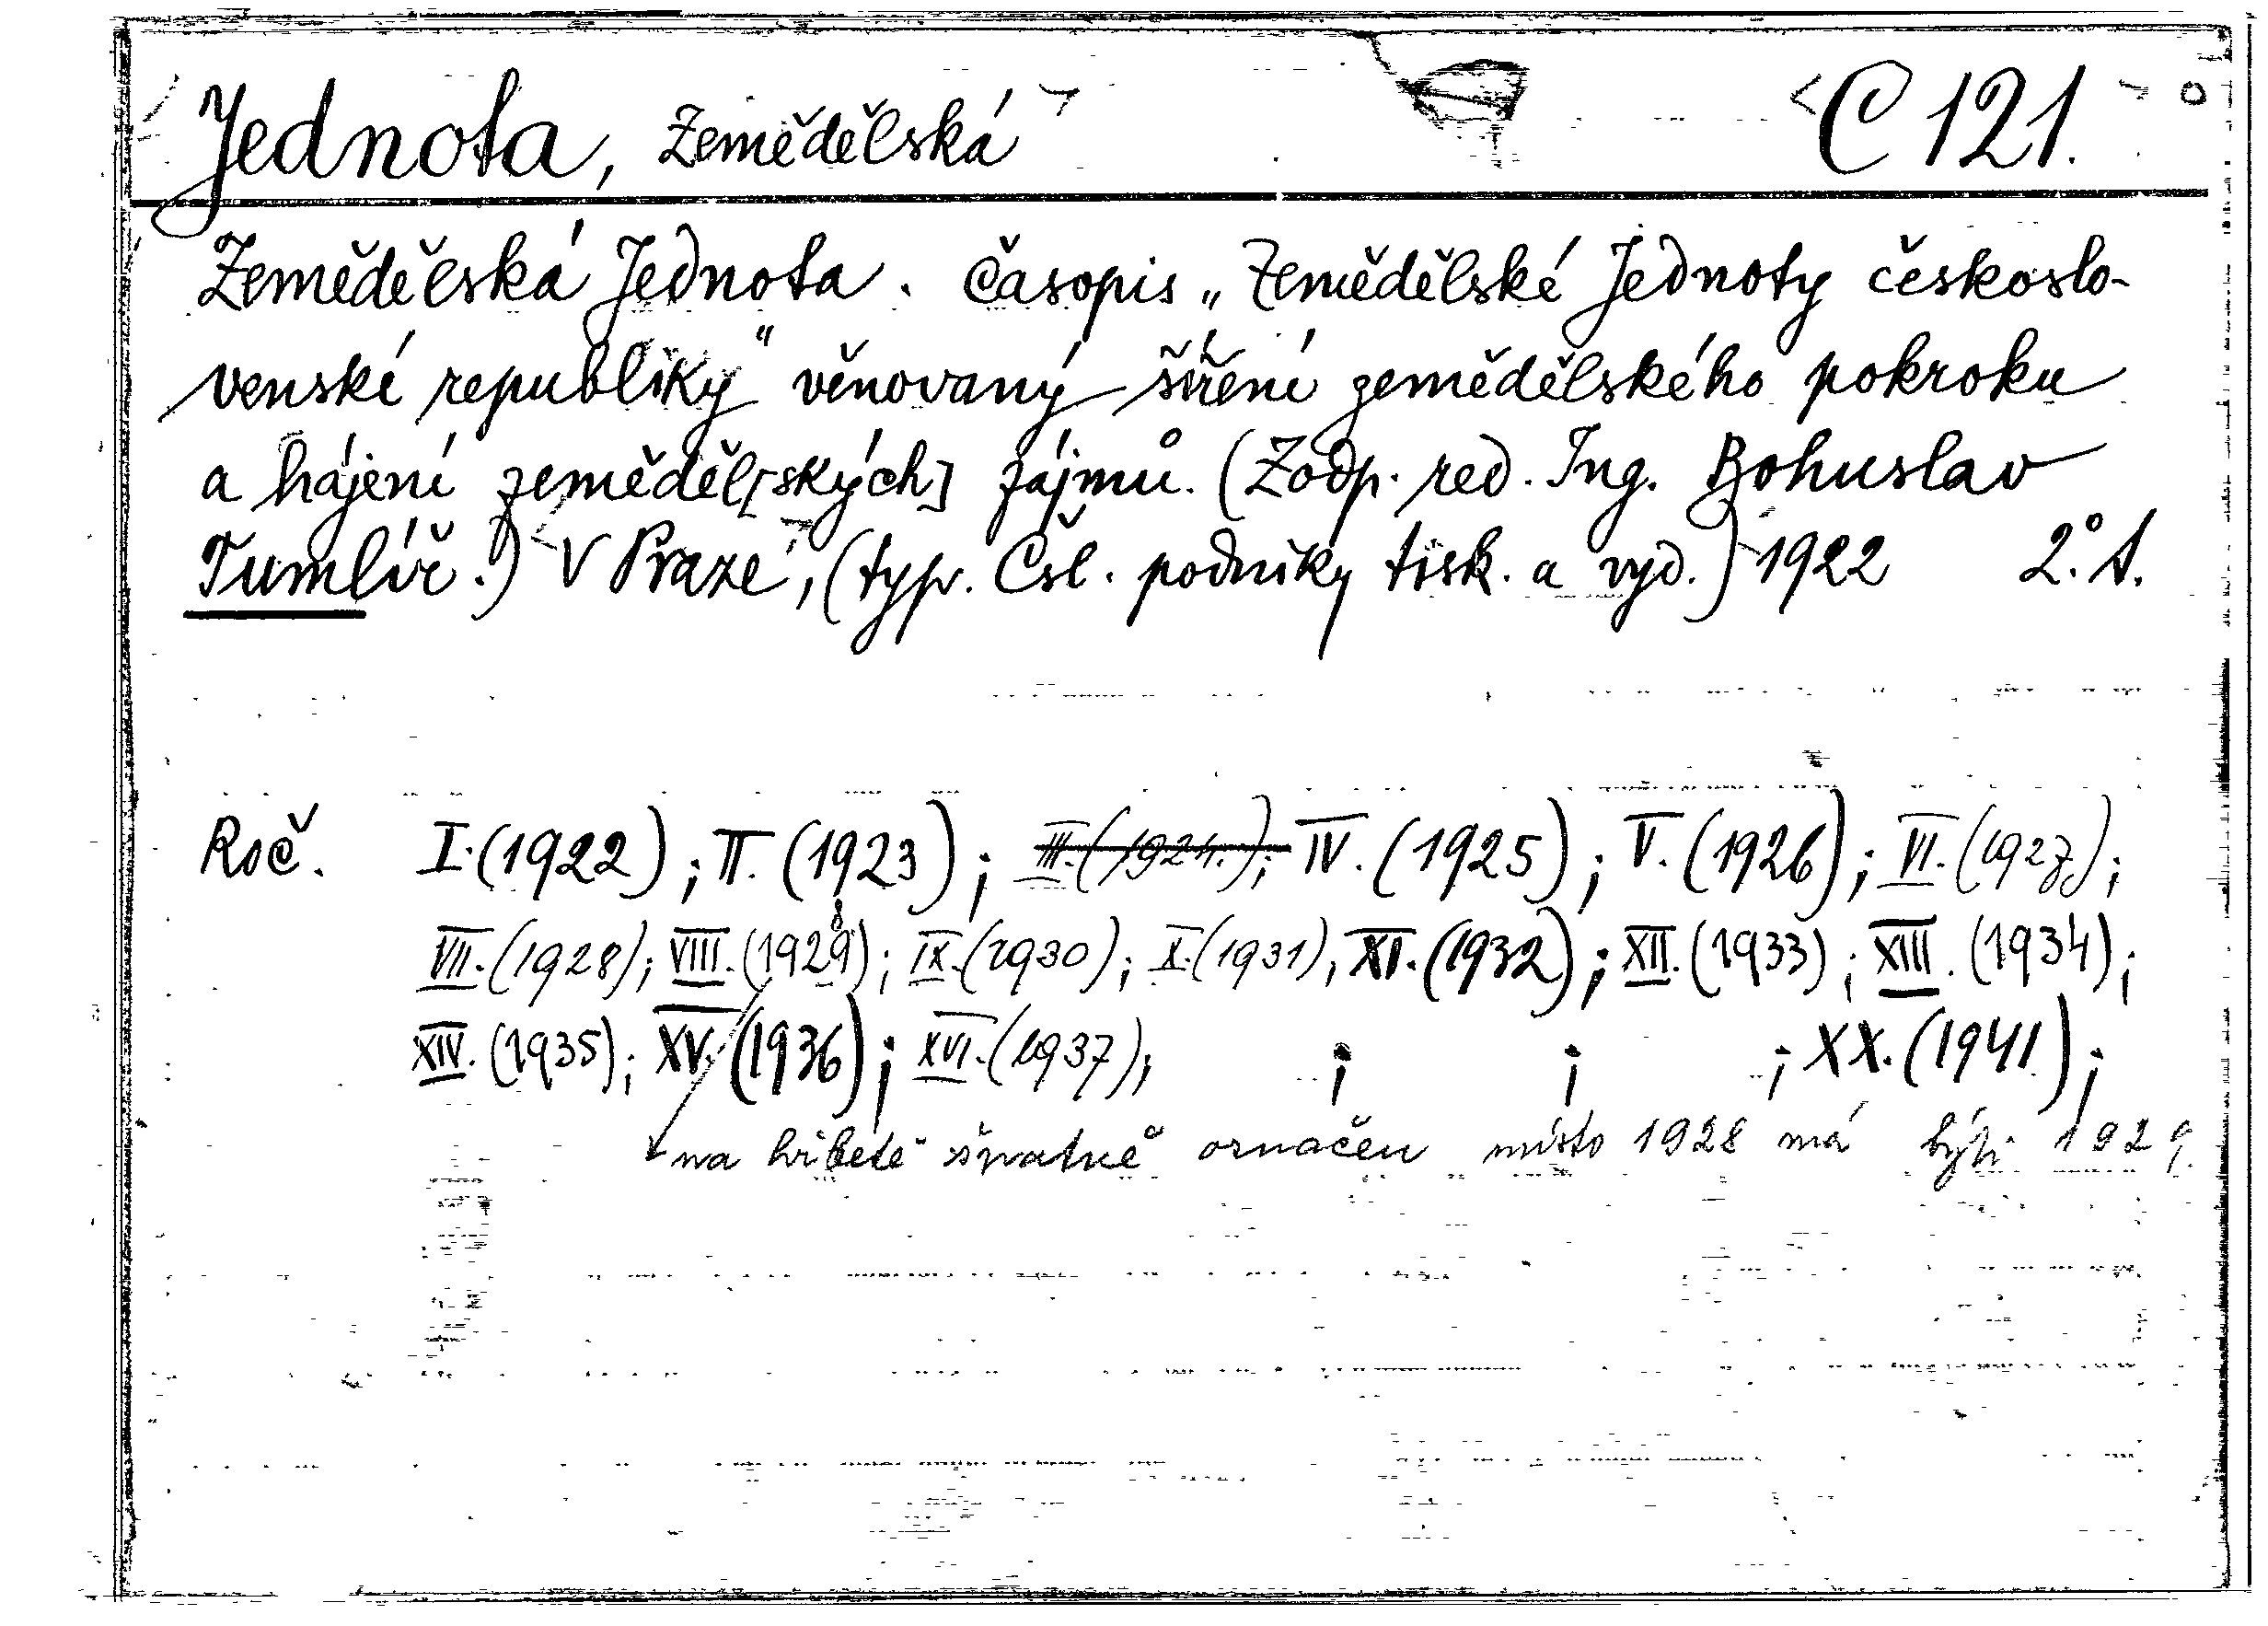 Jednota, Zemědělská C 121.
Zemědělská Jednota. Časopis „Zemědělské Jednoty českoslo-
venské republiky" věnovaný šíření zemědělského pokroku
a hájení zeměděl[ských] zájmů. (Zodp. red. Ing. Bohuslav
Tumlíř.) V Praze, (typ. Čsl. podniky tisk. a vyd.) 1922 2°. A.
Roč. I. (1922); II. (1923); III. (1924.); IV. (1925); V. (1926); VI. (1927);
VII. (1928); VIII. (1929); IX. (1930); X. (1931); XI. (1932); XII. (1933); XIII. (1934);
XIV. (1935); XV. (1936); XVI. (1937); ; ; ; XX. (1941);
na hřbetě špatně označen místo 1928 má býti 1929.